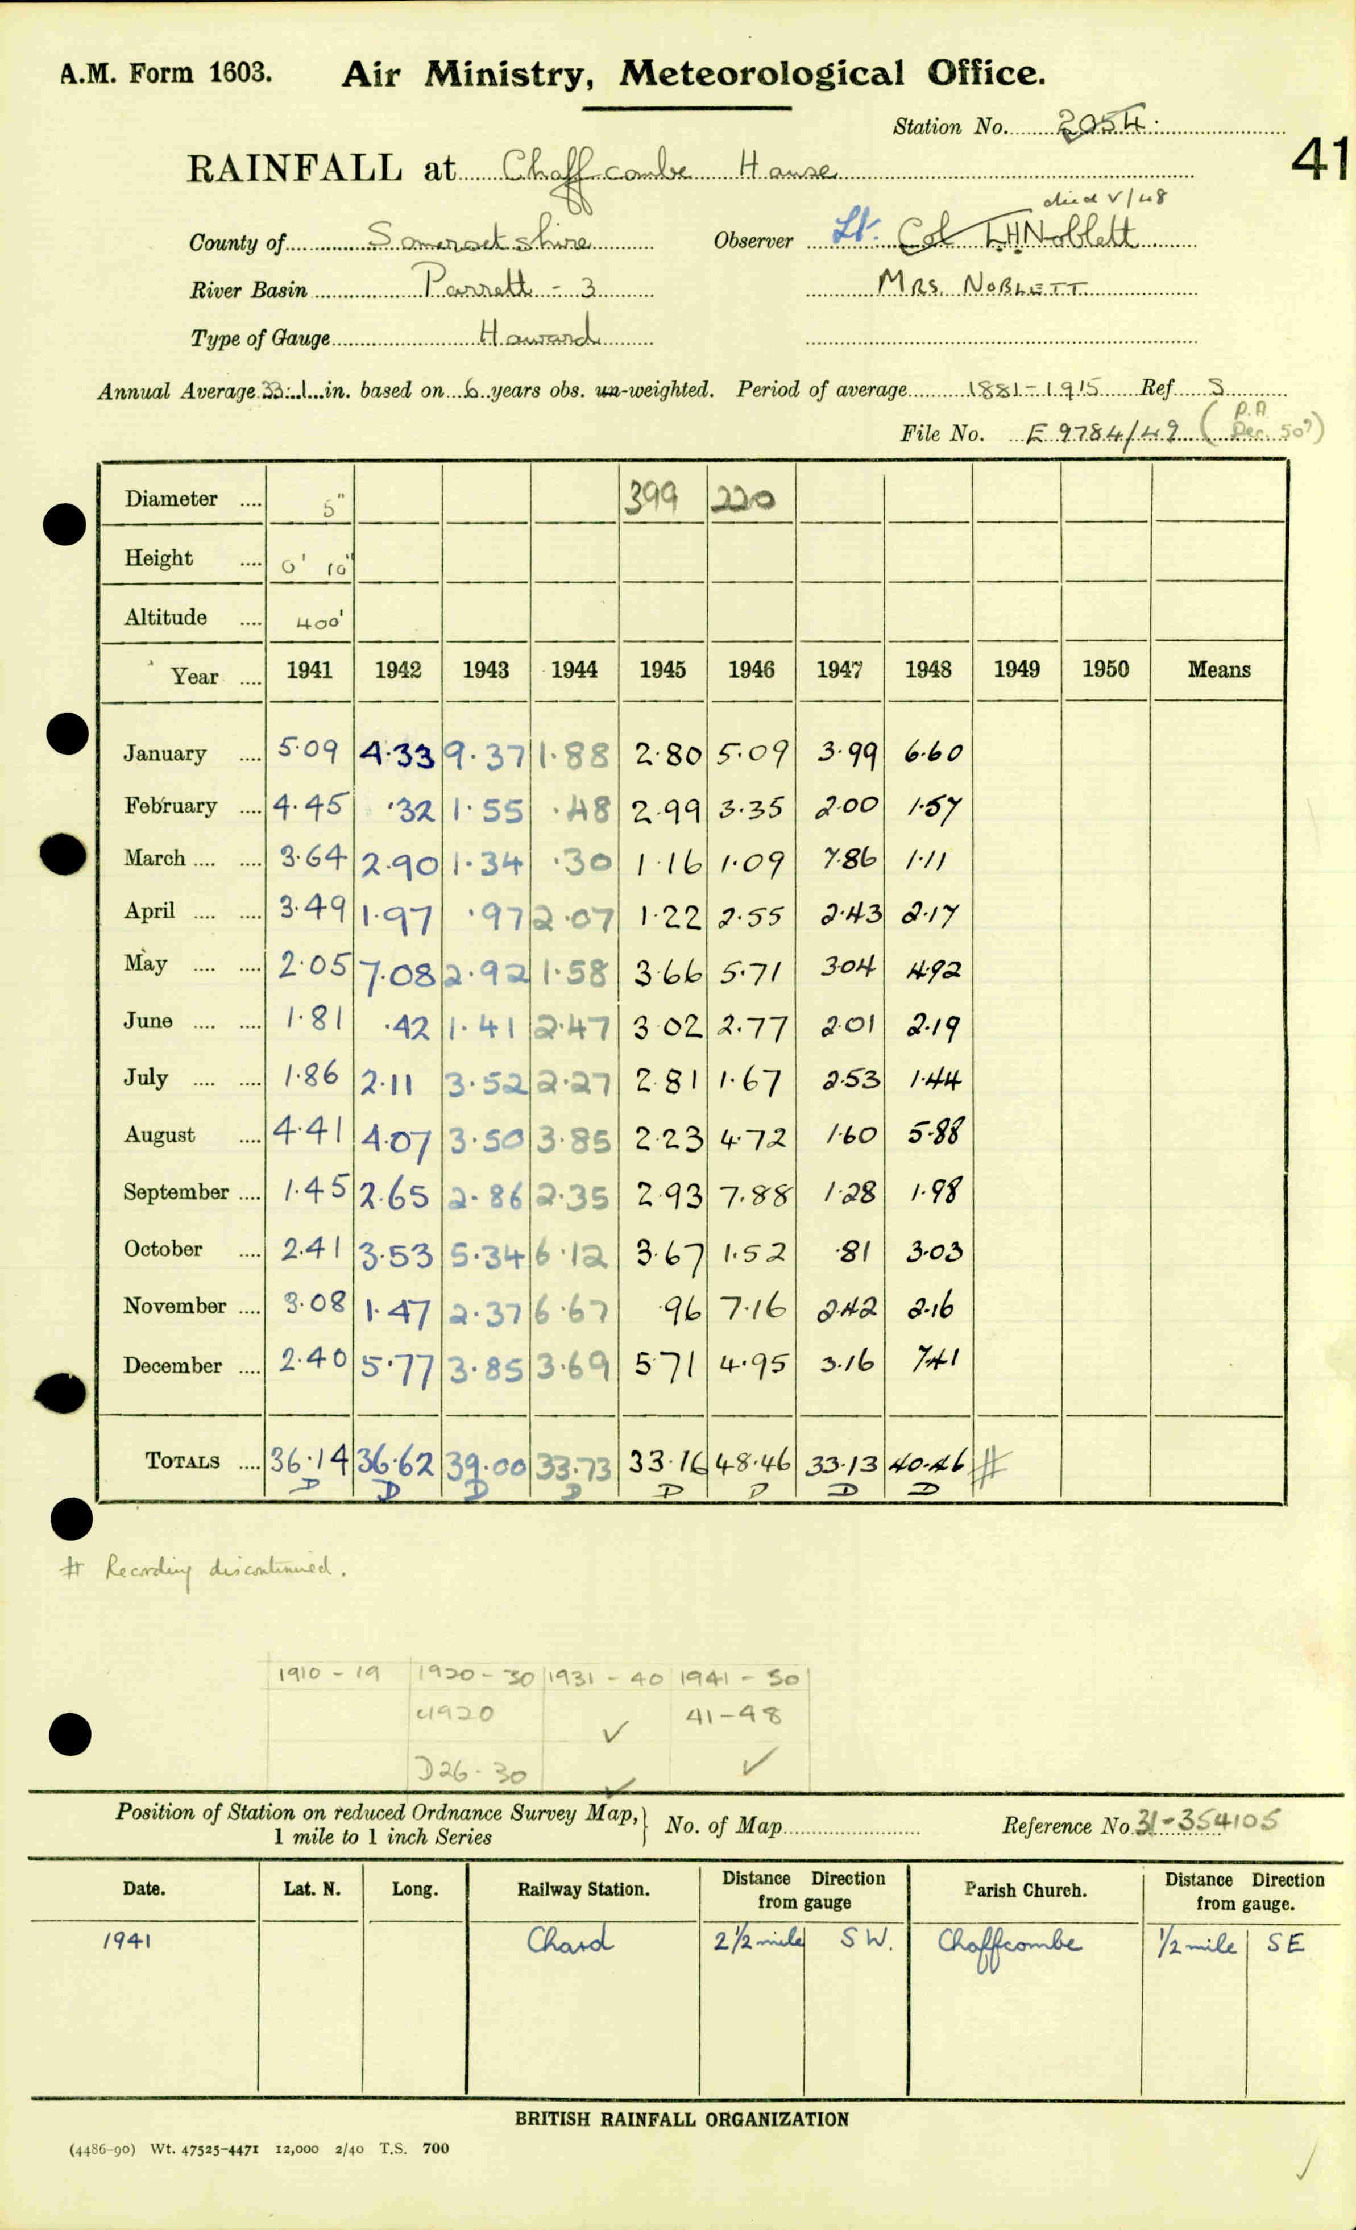 A.M. Form 1603. Air Ministry, Meteorological Office.
Station No. 2054.
41
RAINFALL at Chaffcombe House
died V/48
County of Somersetshire Observer Lt. Col L.H. Noblett
River Basin Parrett - 3 MRS. NOBLETT
Type of Gauge Howard
Annual Average 33.1 in. based on 6 years obs. un-weighted. Period of average 1881-1915 Ref S
File No. E 9784/49 (P.A Dec. 50?)
Diameter .... 5" 399 220
Height .... 0' 10"
Altitude .... 400'
Year .... 1941 1942 1943 1944 1945 1946 1947 1948 1949 1950 Means
January .... 5.09 4.33 9.37 1.88 2.80 5.09 3.99 6.60
February .... 4.45 .32 1.55 .48 2.99 3.35 2.00 1.57
March .... .... 3.64 2.90 1.34 .30 1.16 1.09 7.86 1.11
April .... .... 3.49 1.97 .97 2.07 1.22 2.55 2.43 2.17
May .... .... 2.05 7.08 2.92 1.58 3.66 5.71 3.04 4.92
June .... .... 1.81 .42 1.41 2.47 3.02 2.77 2.01 2.19
July .... .... 1.86 2.11 3.52 2.27 2.81 1.67 2.53 1.44
August .... 4.41 4.07 3.50 3.85 2.23 4.72 1.60 5.88
September .... 1.45 2.65 2.86 2.35 2.93 7.88 1.28 1.98
October .... 2.41 3.53 5.34 6.12 3.67 1.52 .81 3.03
November .... 3.08 1.47 2.37 6.67 .96 7.16 2.42 2.16
December .... 2.40 5.77 3.85 3.69 5.71 4.95 3.16 7.41
TOTALS .... 36.14 36.62 39.00 33.73 33.16 48.46 33.13 40.46 #
D D D D D D D D
# Recording discontinued.
1910 - 19 1920 - 30 1931 - 40 1941 - 50
c1920 ✓ 41-48
D26-30 ✓ ✓
Position of Station on reduced Ordnance Survey Map, } No. of Map Reference No 31-354105
1 mile to 1 inch Series
Date. Lat. N. Long. Railway Station. Distance Direction from gauge Parish Church. Distance Direction from gauge.
1941 Chard 2 1/2 mile SW. Chaffcombe 1/2 mile SE
BRITISH RAINFALL ORGANIZATION
(4486-90) Wt. 47525-4471 12,000 2/40 T.S. 700
✓